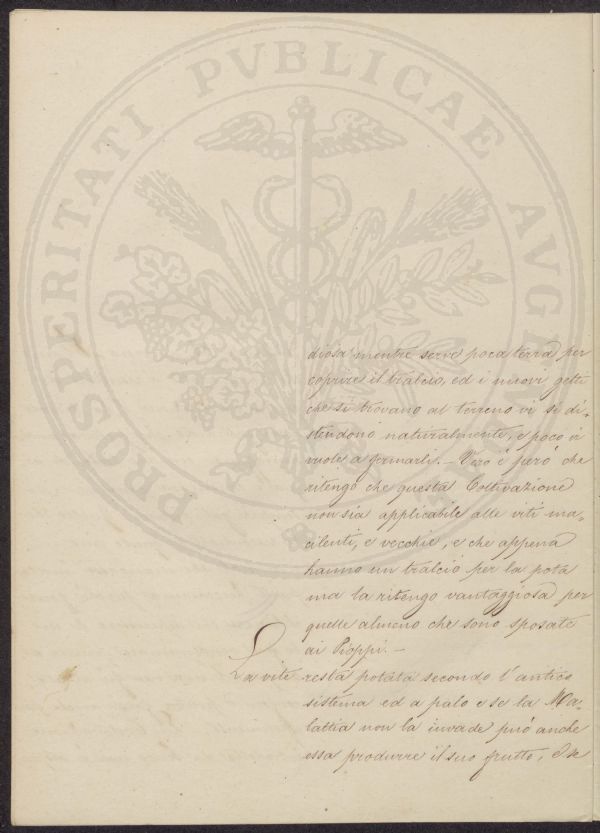 PROSPERITATI PVBLICAE AVGEN
diosa mentre serve poca terra per
coprire il tralcio, ed i nuovi getti
che si trovano al terreno vi si di-
stendono naturalmente, e poco vi
vuole a fermarli. – Vero è però che
ritengo che questa Coltivazione
non sia applicabile alle viti ma-
cilenti, e vecchie, e che appena
hanno un tralcio per la pota
ma la ritengo vantaggiosa per
quelle almeno che sono sposate
ai Pioppi. –
La vite resta potata secondo l'antico
sistema ed a palo e se la Ma-
lattia non la invade può anche
essa produrre il suo frutto, E se